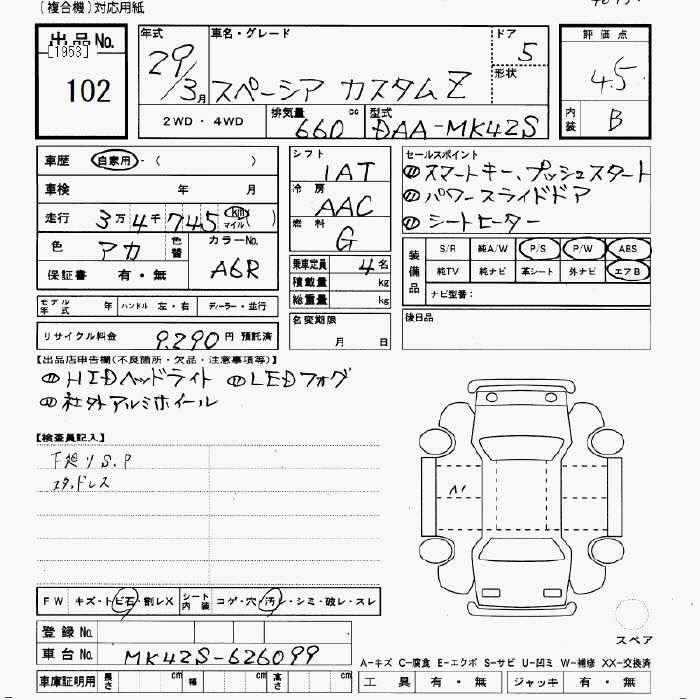 (複合機)対応用紙
出品No.
[1953]
102
年式
29/3月
車名・グレード
スペーシア カスタムZ
ドア
5
形状
評価点
4.5
内装
B
2WD・4WD
排気量
660
cc
型式
DAA-MK42S
車歴
自家用・( )
車検 年 月
走行 3万4千745 km マイル ( )
色 アカ 色替
カラーNo.
A6R
保証書 有・無
モデル年式 年 ハンドル 左・右 ディーラー・並行
リサイクル料金 9,290円 預託済
シフト
IAT
冷房
AAC
燃料
G
乗車定員 4名
積載量 kg
総重量 kg
名変期限
月 日
セールスポイント
スマートキー、プッシュスタート
パワースライドドア
シートヒーター
装備品
S/R 純A/W P/S P/W ABS
純TV 純ナビ 革シート 外ナビ エアB
ナビ型番:
後日品
【出品店申告欄(不良箇所・欠品・注意事項等)】
HIDヘッドライト LEDフォグ
社外アルミホイール
【検査員記入】
下廻りS.P
スタッドレス
FW キズ・トビ石・割レX シート内装 コゲ・穴・汚レ・シミ・破レ・スレ
登録No.
車台No. MK42S-626099
車庫証明用 長さ cm 幅 cm 高さ cm
スペア
A-キズ C-腐食 E-エクボ S-サビ U-凹ミ W-補修 XX-交換済
工具 有・無 ジャッキ 有・無